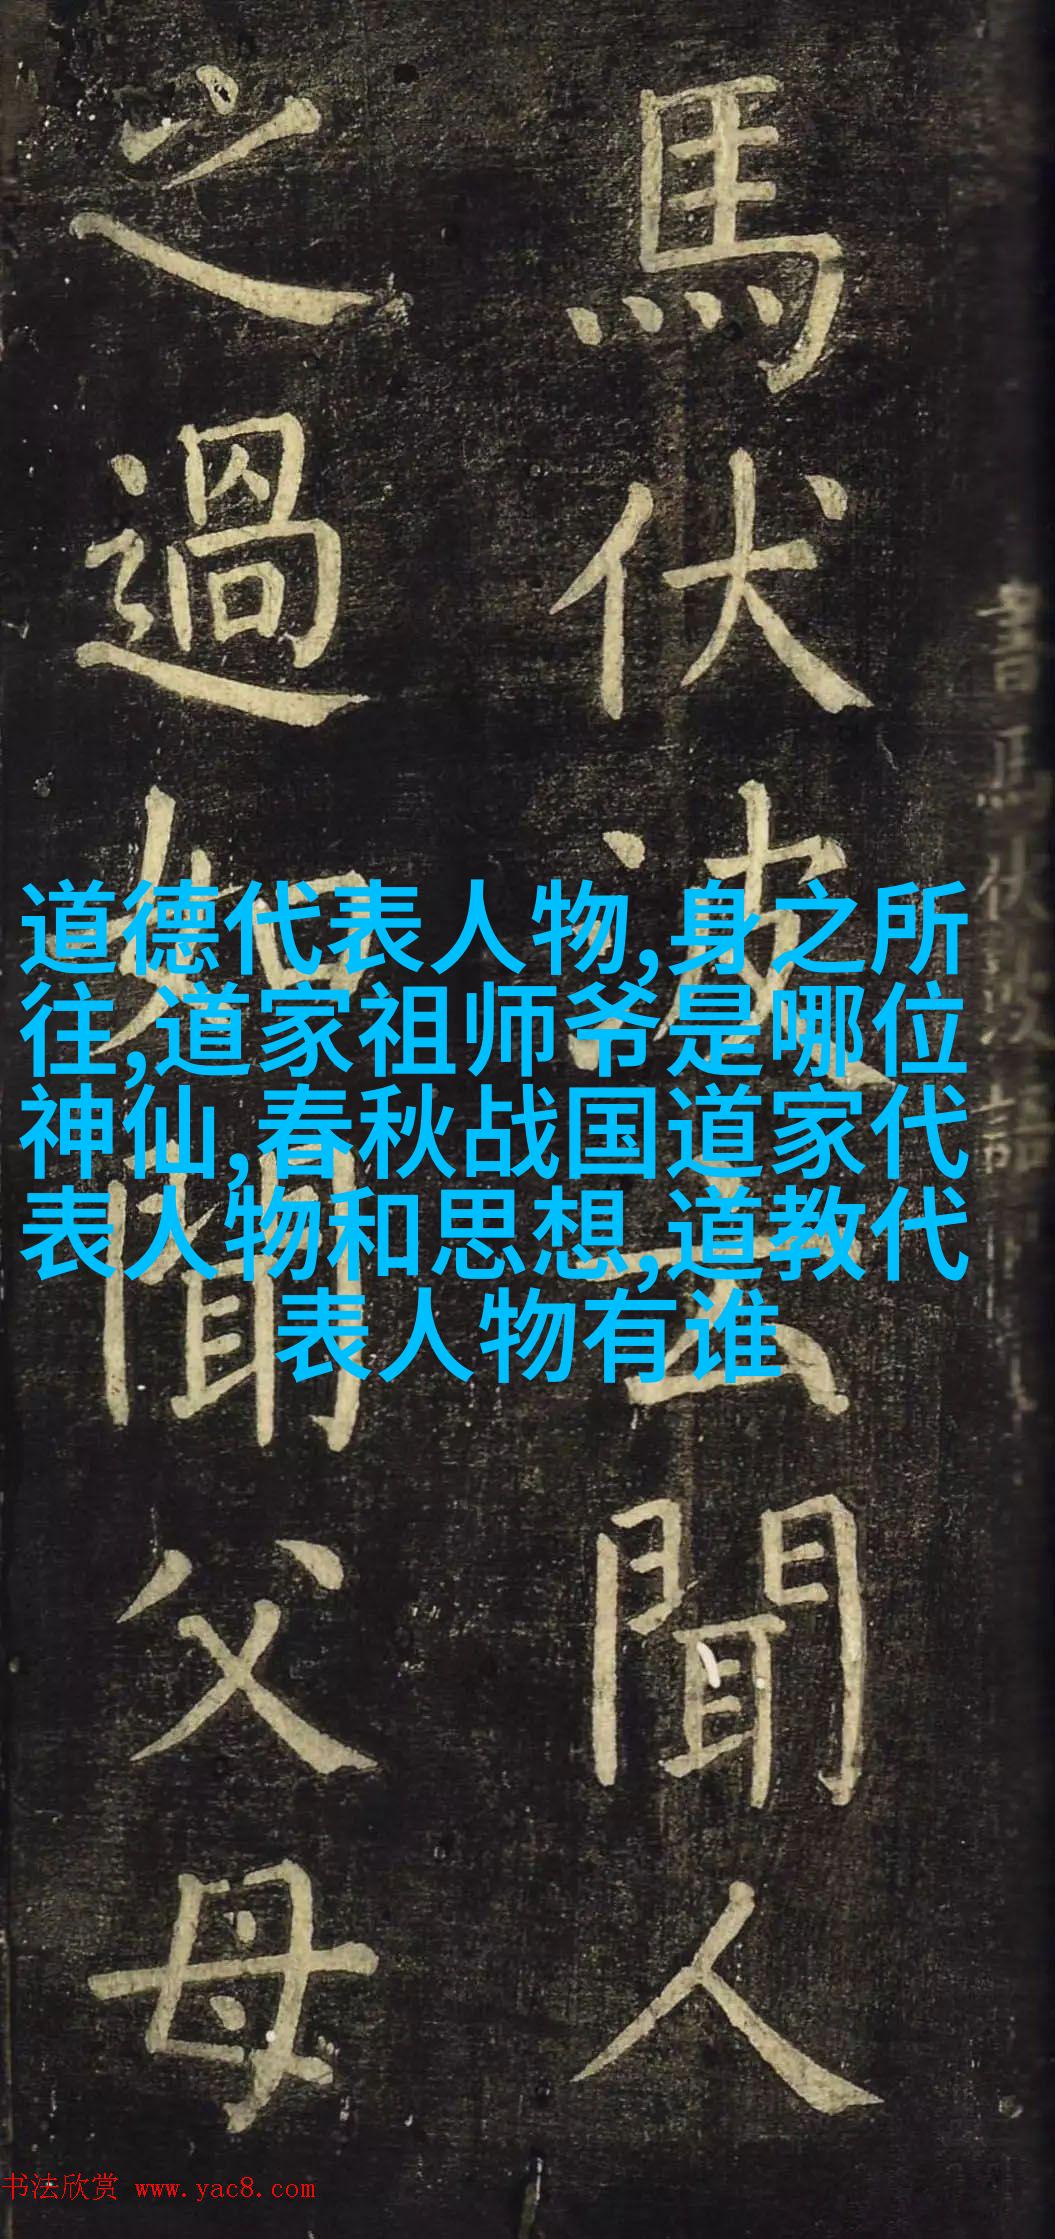 書馬伏波
馬伏波云聞人
之過如聞父母
道德代表人物,身之所
往,道家祖师爷是哪位
神仙,春秋战国道家代
表人物和思想,道教代
表人物有谁
书法欣赏 www.yac8.com